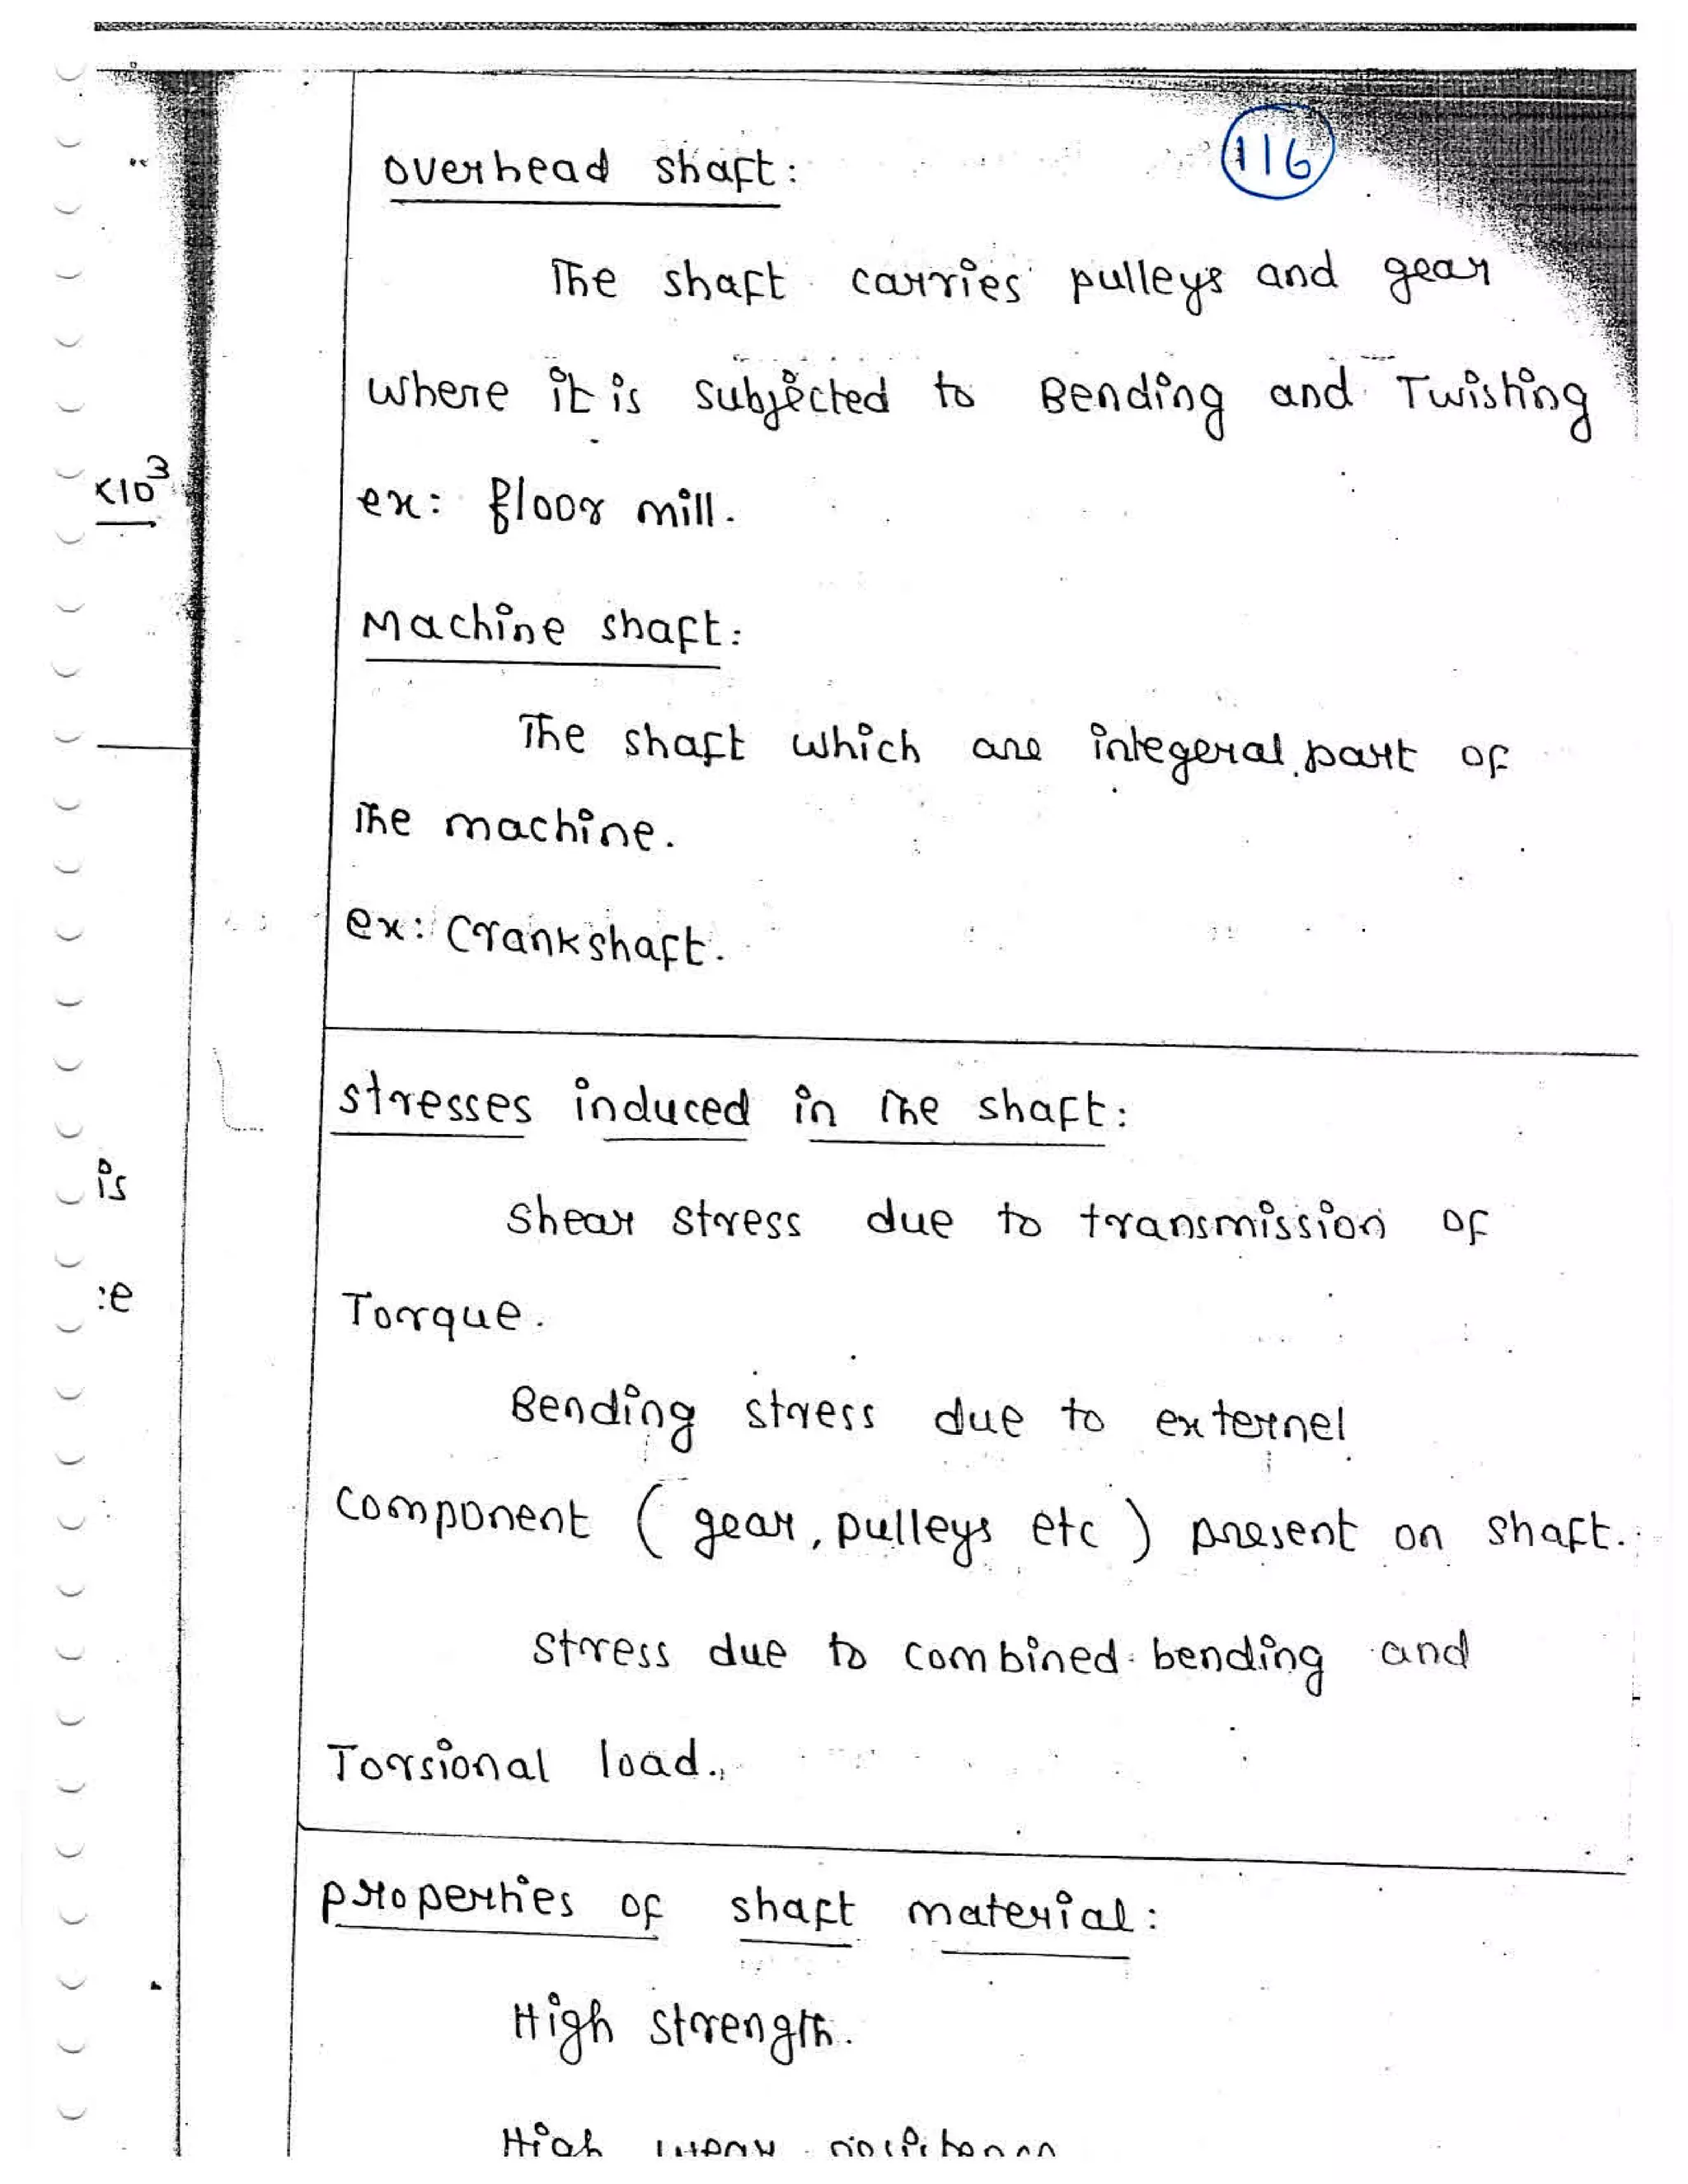 116
overhead shaft:
The shaft carries pulleys and gear
where it is subjected to Bending and Twisting
ex: floor mill.
Machine shaft:
The shaft which are integeral part of
the machine.
ex: Crankshaft.
stresses induced in the shaft:
Shear stress due to transmission of
Torque.
Bending stress due to externel
component ( gear, pulleys etc ) present on shaft.
Stress due to combined bending and
Torsional load.
properties of shaft material:
High strength.
High
×10³
is
:e